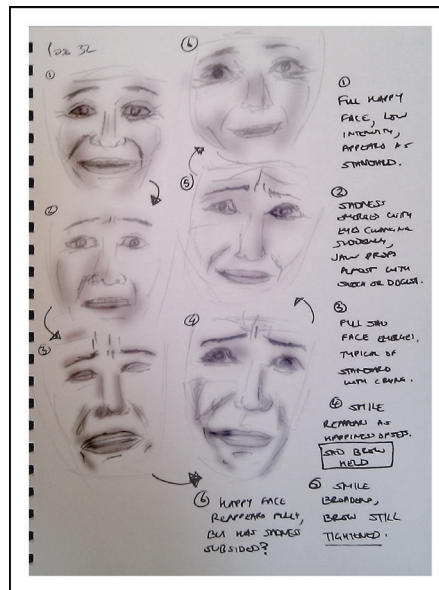 ①
②
③
④
⑤
⑥
①
FULL HAPPY
FACE, LOW
INTENSITY,
APPEARS AS
STANDARD.
②
SADNESS
EMERGES WITH
EYES CHANGING
SUDDENLY,
JAW DROPS
ALMOST WITH
SHOCK OR DISGUST.
③
FULL SAD
FACE EMERGES,
TYPICAL OF
STANDARD
WITH CRYING.
④ SMILE
REAPPEARS AS
HAPPINESS ONSETS.
SAD BROW
HELD
⑤ SMILE
BROADENS,
BROW STILL
TIGHTENED.
⑥ HAPPY FACE
REAPPEARS FULLY,
BUT HAS SADNESS
SUBSIDED?